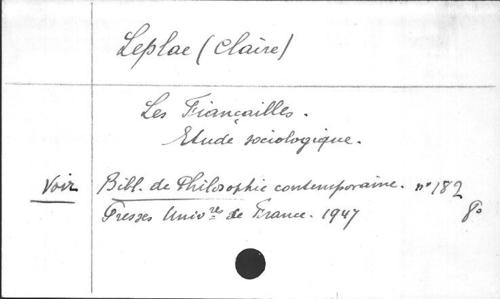 Leplae (Claire)
Les Fiançailles.
Etude sociologique.
Voir Bibl. de Philosophie contemporaine. n° 182
Presses Univ.res de France. 1947 8°